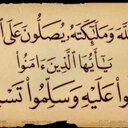 للَّهَ وَمَلَٰٓئِكَتَهُۥ يُصَلُّونَ عَلَى ٱ
يَٰٓأَيُّهَا ٱلَّذِينَ ءَامَنُوا۟
وا۟ عَلَيْهِ وَسَلِّمُوا۟ تَسْ